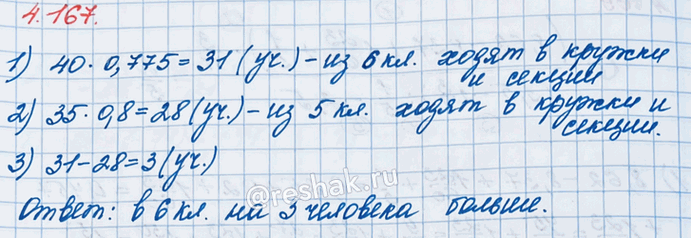 4.167.
1) 40 · 0,775 = 31 (уч.) – из 6 кл. ходят в кружки
и секции
2) 35 · 0,8 = 28 (уч.) – из 5 кл. ходят в кружки и
секции.
3) 31 – 28 = 3 (уч.)
©reshak.ru
Ответ: в 6 кл. на 3 человека больше.